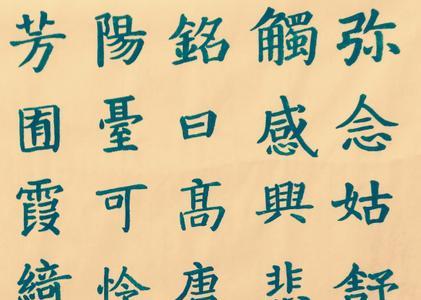 弥念姑舒
觸感興悲
銘曰髙唐
陽臺可
芳囿霞綺